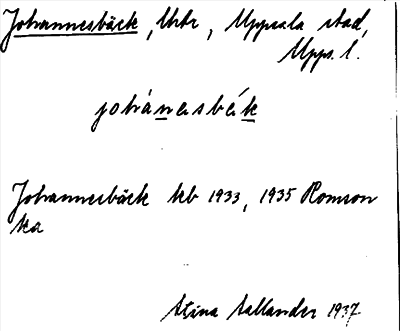 Johannesbäck, Uttr, Uppsala stad,
Upps. l.
johánesbék
Johannesbäck kb 1933, 1935 Romson
ka
Stina Sallander 1937